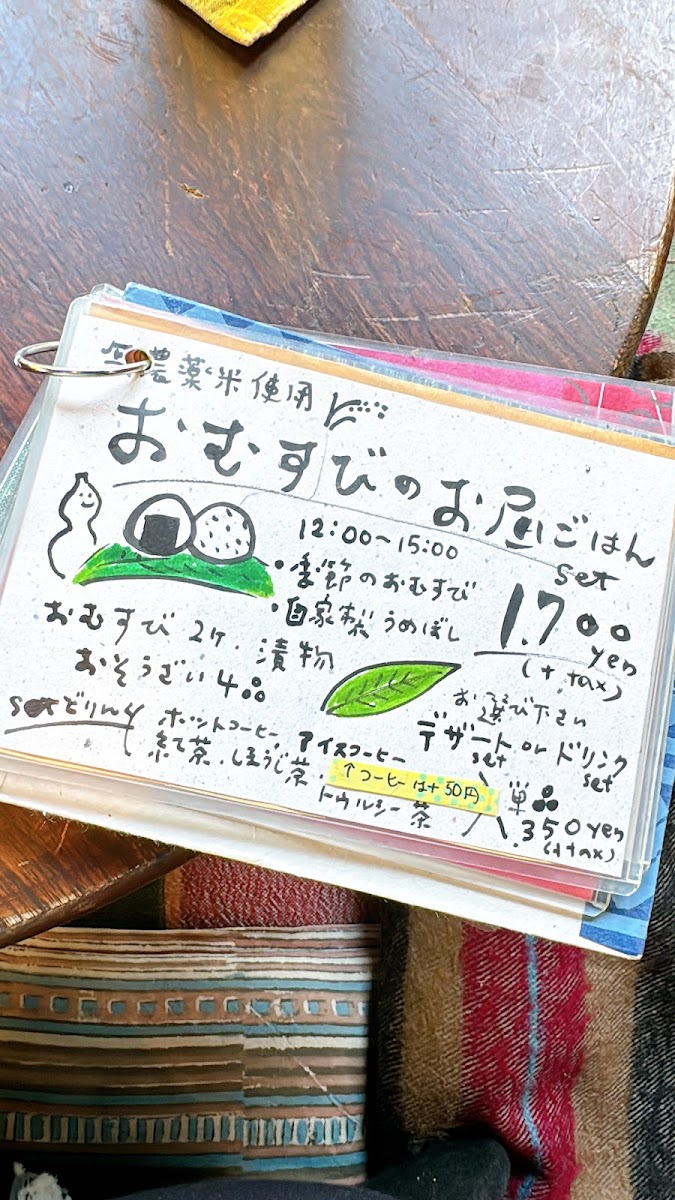 農薬米使用
おむすびのお昼ごはん
12:00〜15:00
・季節のおむすび
・自家製うめぼし
set
1.700
yen
(+tax)
おむすび 2ヶ. 漬物
おそうざい 4品
お選び下さい
デザート or ドリンク
set set
setどりんく
ホットコーヒー アイスコーヒー
紅茶.ほうじ茶.
↑コーヒーは+50円
トゥルシー茶
単品
.350yen
(+tax)